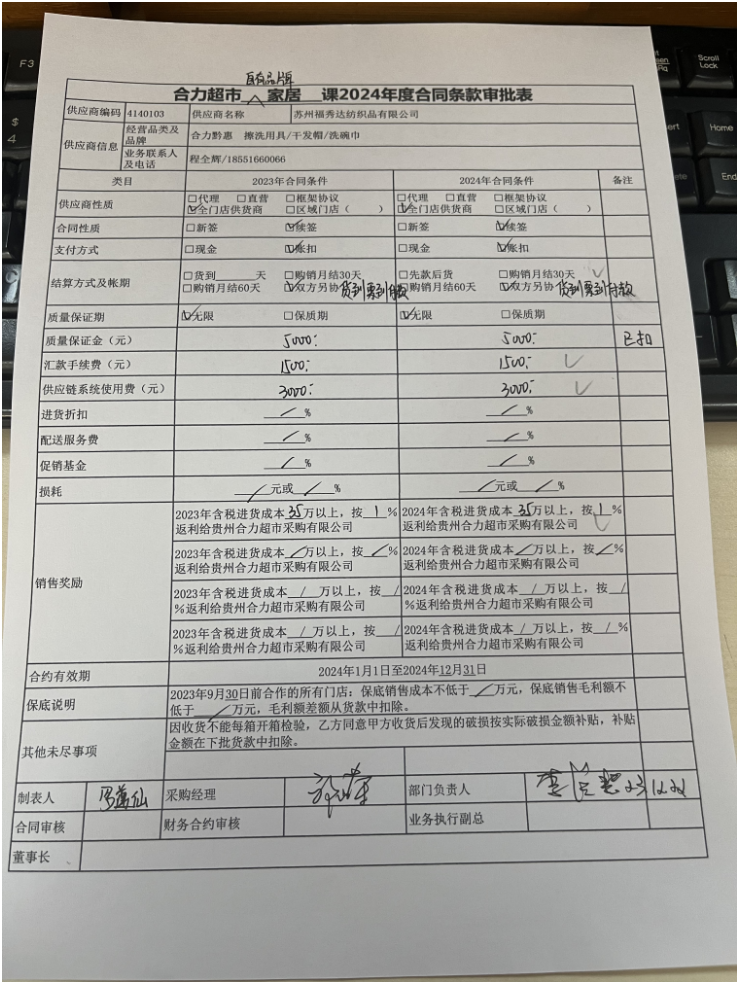 自有品牌
合力超市 家居 课2024年度合同条款审批表
供应商编码 4140103 供应商名称 苏州福秀达纺织品有限公司
供应商信息 经营品类及品牌 合力黔惠 擦洗用具/干发帽/洗碗巾
业务联系人及电话 程全辉/18551660066
类目 2023年合同条件 2024年合同条件 备注
供应商性质 □代理 □直营 □框架协议 □代理 □直营 □框架协议
☑全门店供货商 □区域门店（ ） ☑全门店供货商 □区域门店（ ）
合同性质 □新签 ☑续签 □新签 ☑续签
支付方式 □现金 ☑账扣 □现金 ☑账扣
结算方式及帐期 □货到 天 □购销月结30天 □先款后货 □购销月结30天
□购销月结60天 ☑双方另协 货到票到付款 □购销月结60天 ☑双方另协 货到票到付款
质量保证期 ☑无限 □保质期 ☑无限 □保质期
质量保证金（元） 5000: 5000: 已扣
汇款手续费（元） 1500: 1500: ✓
供应链系统使用费（元） 3000: 3000: ✓
进货折扣 / % / %
配送服务费 / % / %
促销基金 / % / %
损耗 / 元或 / % / 元或 / %
销售奖励 2023年含税进货成本35万以上，按 1 % 2024年含税进货成本35万以上，按 1 %
返利给贵州合力超市采购有限公司 返利给贵州合力超市采购有限公司
2023年含税进货成本 / 万以上，按 / % 2024年含税进货成本 / 万以上，按 / %
返利给贵州合力超市采购有限公司 返利给贵州合力超市采购有限公司
2023年含税进货成本 / 万以上，按 / 2024年含税进货成本 / 万以上，按 /
%返利给贵州合力超市采购有限公司 %返利给贵州合力超市采购有限公司
2023年含税进货成本 / 万以上，按 / 2024年含税进货成本 / 万以上，按 / %
%返利给贵州合力超市采购有限公司 返利给贵州合力超市采购有限公司
合约有效期 2024年1月1日至2024年12月31日
保底说明 2023年9月30日前合作的所有门店：保底销售成本不低于 / 万元，保底销售毛利额不
低于 / 万元，毛利额差额从货款中扣除。
其他未尽事项 因收货不能每箱开箱检验，乙方同意甲方收货后发现的破损按实际破损金额补贴，补贴
金额在下批货款中扣除。
制表人 采购经理 部门负责人
合同审核 财务合约审核 业务执行副总
董事长
F3
$
4
Scroll
Lock
Home
End